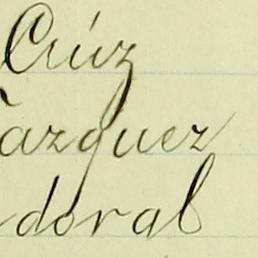 Crúz
azquez
doral